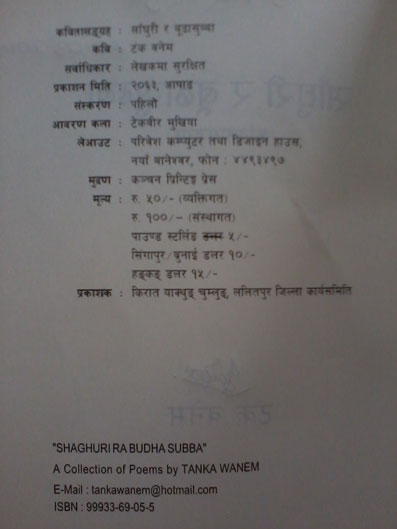 कवितासङ्ग्रह : साँघुरी र बूढासुब्बा
कवि : टंक वनेम
सर्वाधिकार : लेखकमा सुरक्षित
प्रकाशन मिति : २०६३, आषाढ
संस्करण : पहिलो
आवरण कला : टेकवीर मुखिया
लेआउट : परिवेश कम्प्युटर तथा डिजाइन हाउस,
नयाँ बानेश्वर, फोन : ४४९३४९७
मुद्रण : कञ्चन प्रिन्टिङ्ग प्रेस
मूल्य : रु. ५०/- (व्यक्तिगत)
रु. १००/- (संस्थागत)
पाउण्ड स्टर्लिङ डलर ५/-
सिंगापुर/ब्रुनाई डलर १०/-
हङ्कङ् डलर १५/-
प्रकाशक : किरात याक्थुङ चुम्लुङ, ललितपुर जिल्ला कार्यसमिति
टंक वनेम
"SHAGHURI RA BUDHA SUBBA"
A Collection of Poems by TANKA WANEM
E-Mail : tankawanem@hotmail.com
ISBN : 99933-69-05-5